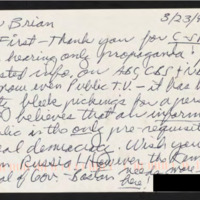 Brian 3/23/
First - Thank you for C-S
hearing only propaganda!
ated info, on ABC CBS + N
now even Public T.V. - it has b
bleek pickings for a per
believes that an inform
blic is the only pre-requisit
eal democracy. Wish you
in Russia! - However the
of Gov. - Boston needs more
here!